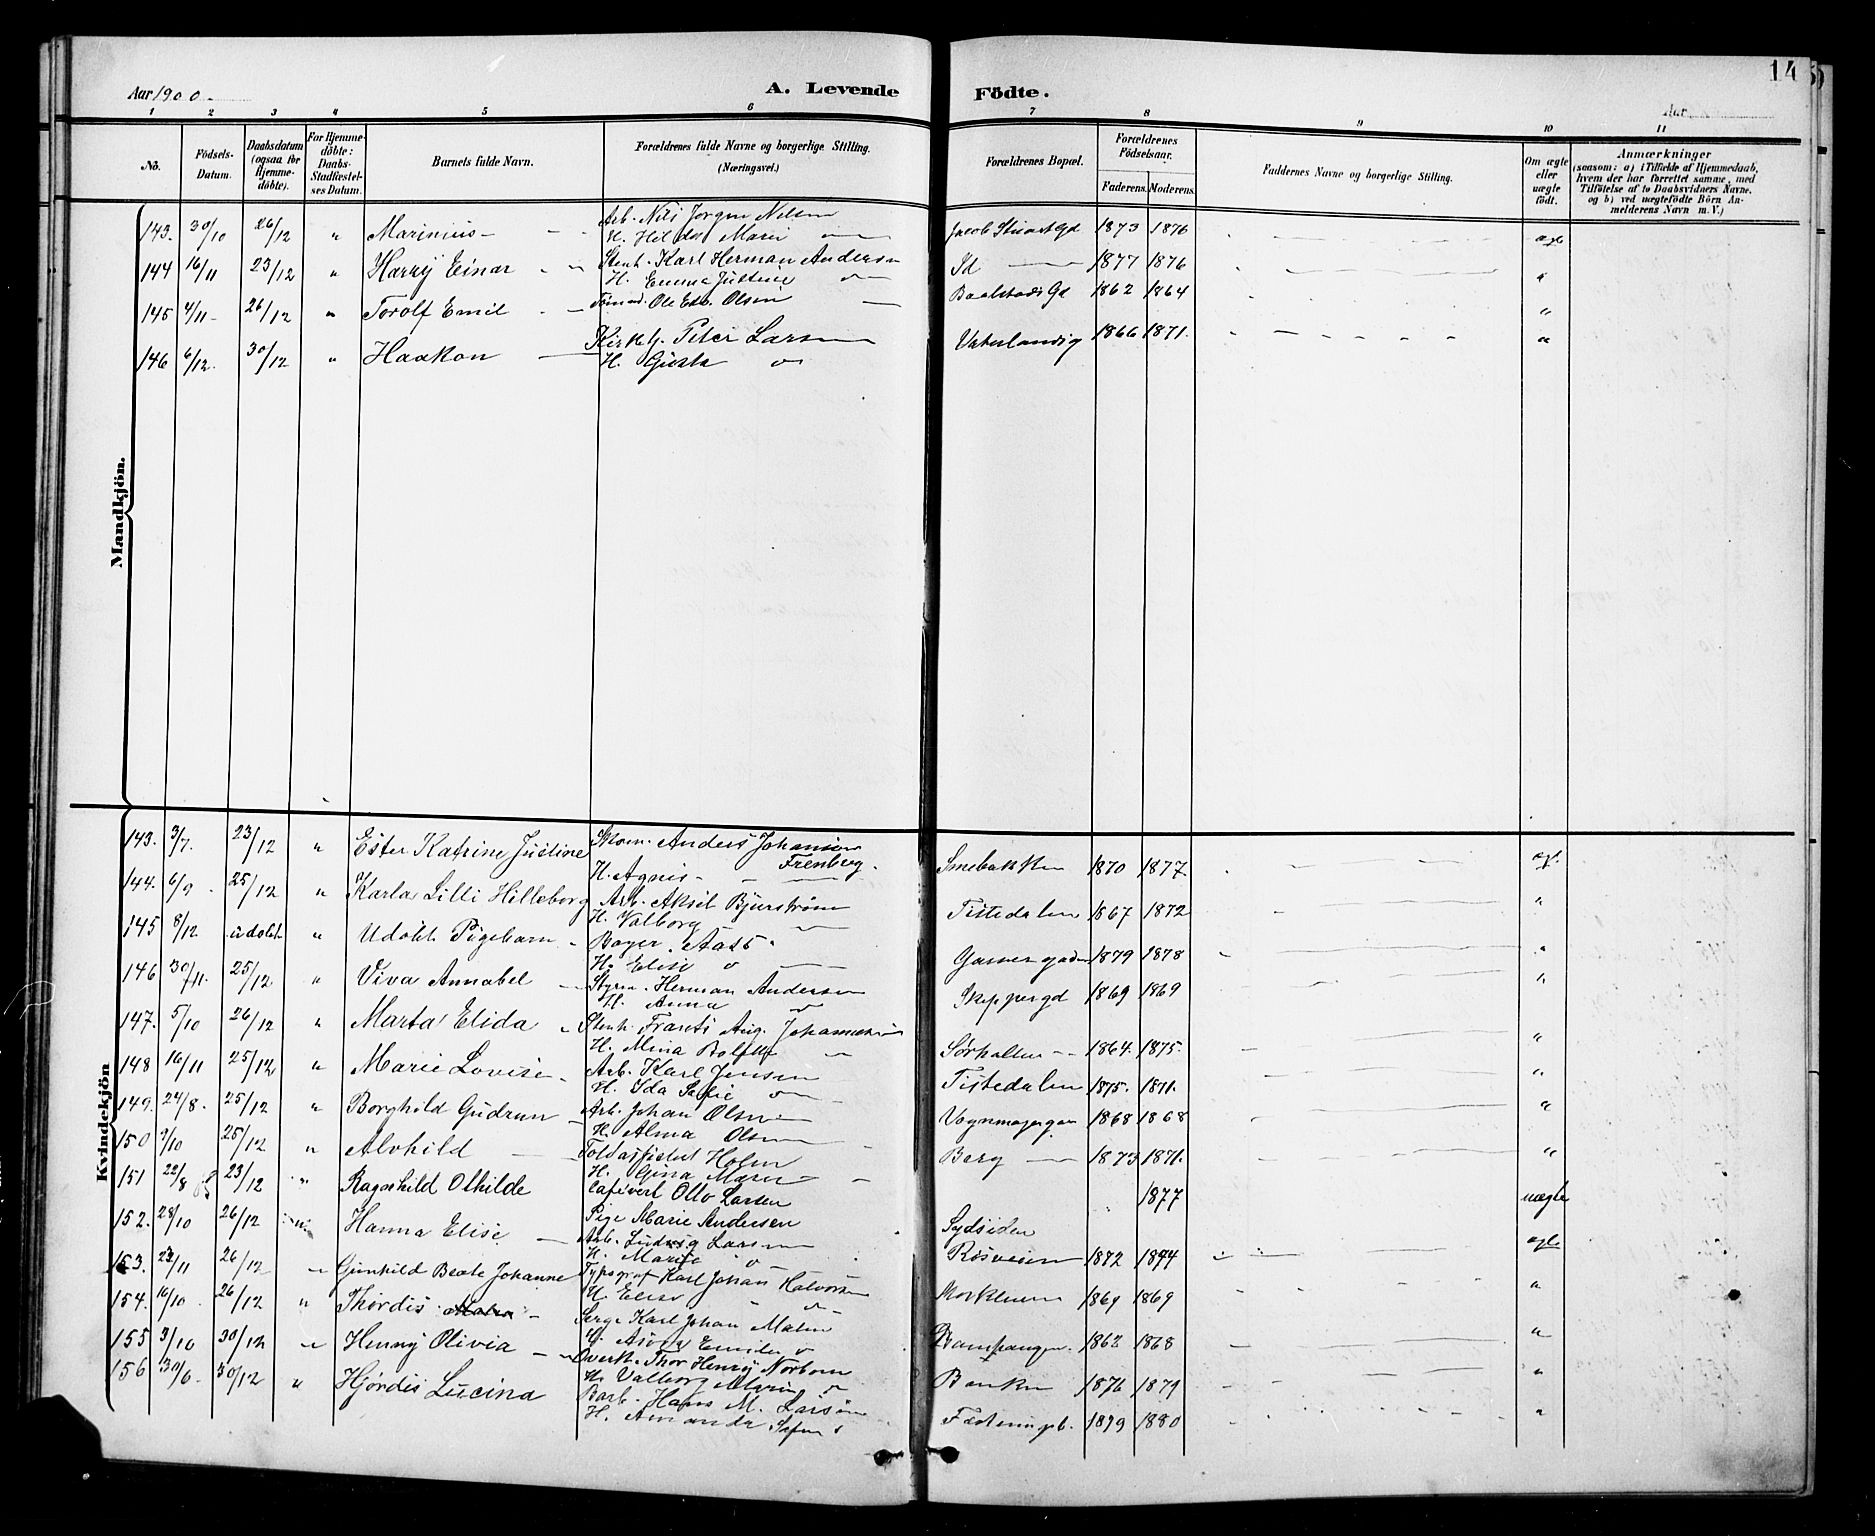 Aar 1900.
A. Levende Födte.
14
Aar
1 2 3 4 5 6 7 8 9 10 11
No.
Födsels-Datum.
Daabsdatum (ogsaa for Hjemme-döbte).
For Hjemme-döbte: Daabs-Stadfæstel-ses Datum.
Barnets fulde Navn.
Forældrenes fulde Navne og borgerlige Stilling.
(Næringsvei.)
Forældrenes Bopæl.
Forældrenes Födselsaar.
Faderens. Moderens.
Faddernes Navne og borgerlige Stilling.
Om ægte eller uægte födt.
Anmærkninger
(saasom: a) i Tilfælde af Hjemmedaab,
hvem der har forrettet samme, med
Tilföielse af to Daabsvidners Navne,
og b) ved uægtefödte Börn An-
melderens Navn m. V.)
Mandkjön.
143. 30/10 26/12 " Marinius - Arb. Nils Jorgen Nilsen Jacob Stuarts Gd 1873 1876 ægt
H. Hilda Marie
144 16/11 23/12 " Harry Einar Stenh. Karl Herman Andersen Id 1877 1876 "
H. Emma Justine
145 4/11 26/12 " Torolf Emil Tömmd. Ole Edv. Olsen Baalstads Gd 1862 1864 "
146 6/12. 30/12 " Haakon Kirketj. Peter Larsen Vaterlandsg 1866 1871. "
H. Gusta
Kvindekjön
143. 3/7. 23/12 " Ester Katrine Justine Skom. Anders Johansen Frenberg. Smebakken 1870 1877 ægt.
H. Agnes
144. 6/9 25/12 " Karla Lilli Hilleborg Arb. Aksel Bjurström Tistedalen 1867 1872 "
H. Valborg
145 8/12 udöbt " Udöbt Pigebarn Bager Aass. Garvergaden 1879 1878 "
H. Elise
146 30/11. 25/12 " Viva Annabel Styrm. Herman Andersen Skippergd 1869 1869 "
H. Anna
147. 5/10 26/12 " Marta Elida Stenh. Frants Aug. Johannesen Sørhalten 1864. 1875. "
H. Mina
148 16/11 25/12 " Marie Lovise Arb. Karl Jensen Tistedalen 1875. 1871. "
H. Ida Sofie
149. 24/8. 25/12 " Borghild Gudrun Arb. Johan Olsen Vognmagergan 1868 1868 "
H. Alma Olsen
150 9/10 25/12 " Alvhild Toldassistent Holm Berg 1873 1871. "
H. Gina Maren
151 22/8 23/12 " Ragnhild Othilde Cafévert Otto Larsen 1877 uægte
Pige Marie Andersen Sydsiden
152. 28/10 26/12 Hanna Elise Arb. Ludvig Larsen Risveien 1872 1874 ægte
H. Marie
153. 23/11 26/12 " Gunhild Beate Johanne Typograf Karl Johan Halvorsen 1869 1869 "
H. Elise
154. 16/10 26/12 " Thordis Serge. Karl Johan Malm Damhaugen. 1862 1868 "
H. Emilie
155 3/10 30/12 " Henny Olivia Overk. Thor Henry Norbom Banken 1876 1879 "
H. Valborg Marie
156 30/6. 30/12 " Hjørdis Lucina Barb. Hans M. Larsen Fæstningsb. 1879 1880 "
H. Amanda